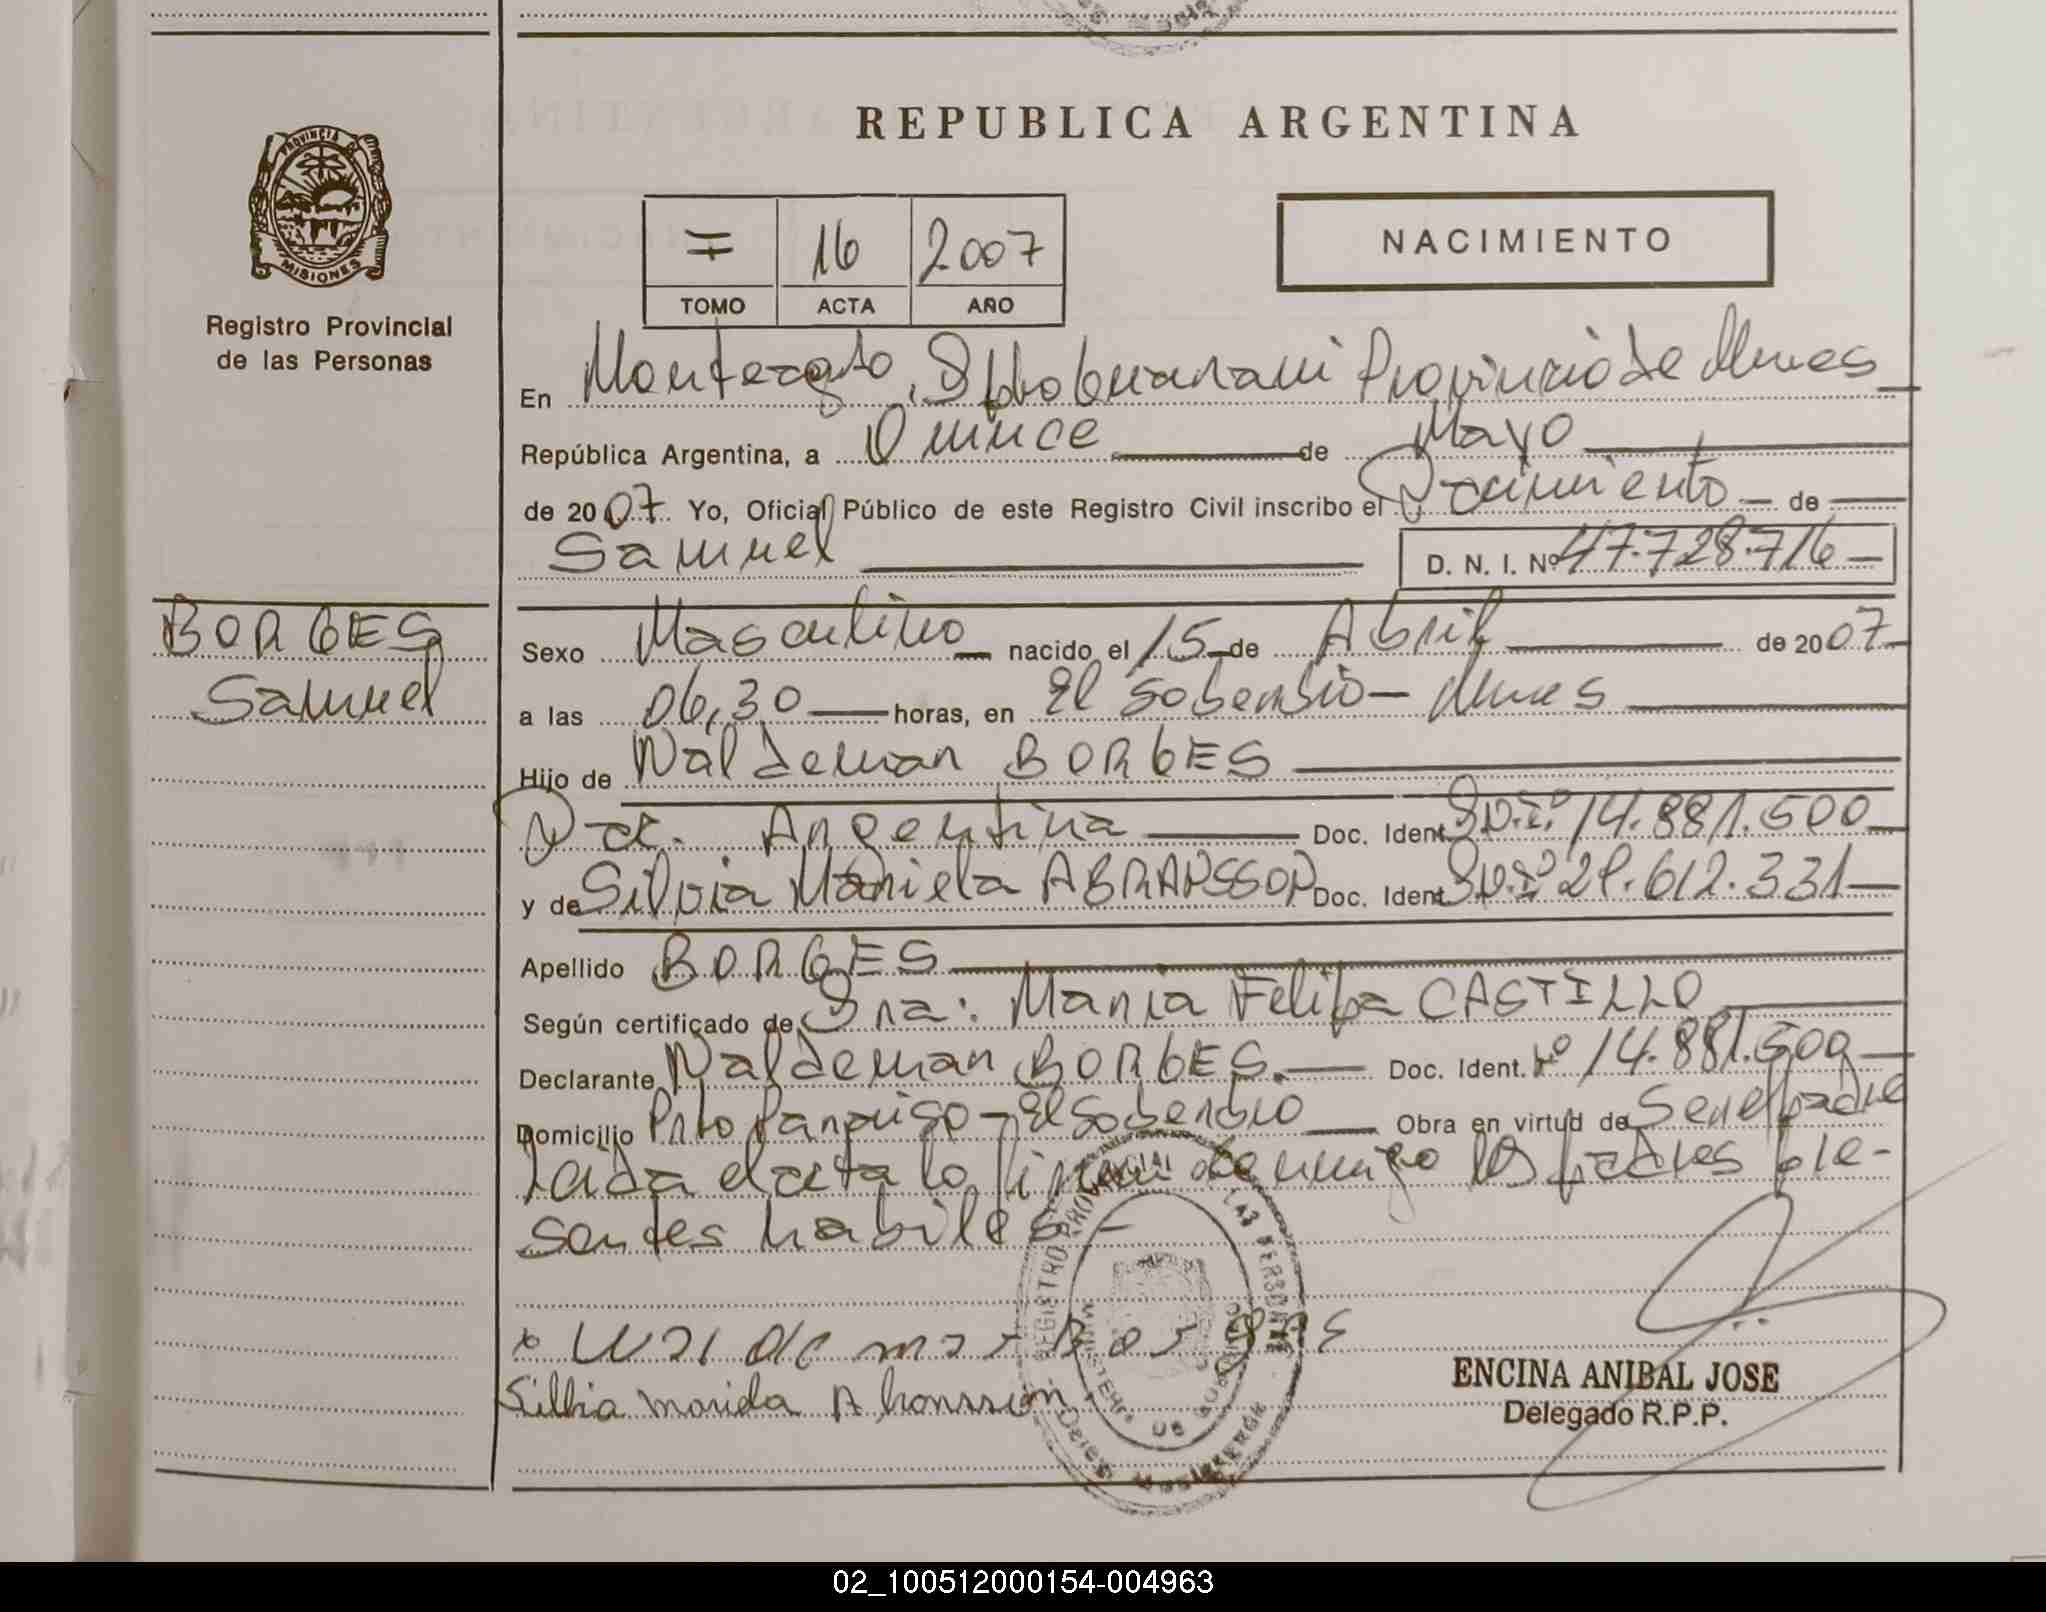 REPUBLICA ARGENTINA
PROVINCIA DE
MISIONES
Registro Provincial
de las Personas
16 2007
TOMO ACTA AÑO
NACIMIENTO
En Monteagudo, Dpto Guarani Provincia de Mnes
República Argentina, a Quince de Mayo
de 2007 Yo, Oficial Público de este Registro Civil inscribo el Nacimiento de
Samuel D. N. I. Nº 47.728.716
BORGES
Samuel
Sexo Masculino nacido el 15 de Abril de 2007
a las 06,30 horas, en El Soberbio - Mnes
Hijo de Waldemar BORGES
Nac. Argentina Doc. Ident. D.N.I. 14.881.500
y de Silvia Mariela ABRANSSON Doc. Ident. D.N.I. 29.612.331
Apellido BORGES
Según certificado de Sra: Maria Felipa CASTILLO
Declarante Waldemar BORGES. Doc. Ident. Nº 14.881.500
Domicilio Pto Paraiso - El Soberbio Obra en virtud de Ser el padre
Leida el acta la firman conmigo los padres pre-
sentes habiles -
x Waldemar Borges
Silbia mariela
REGISTRO PROVINCIAL DE LAS PERSONAS
MINISTERIO DE GOBIERNO
ENCINA ANIBAL JOSE
Delegado R.P.P.
02_100512000154-004963